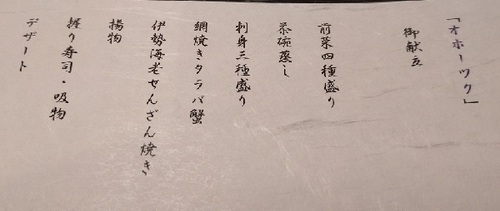 「オホーツク」
御献立
前菜四種盛り
茶碗蒸し
刺身三種盛り
網焼きタラバ蟹
伊勢海老せんざん焼き
揚物
握り寿司・吸物
デザート